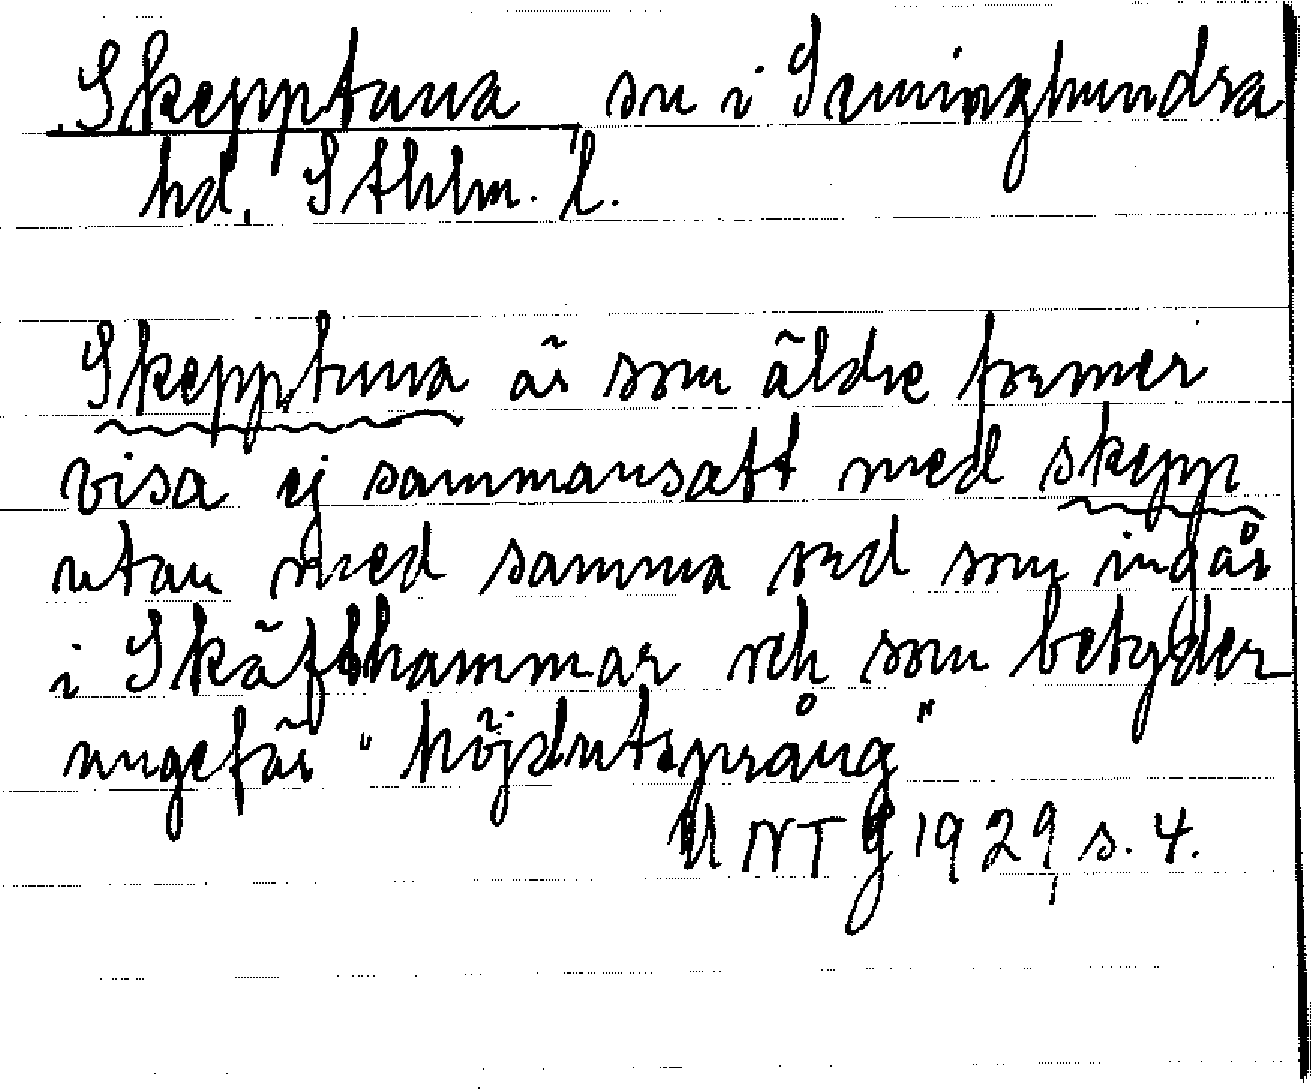 Skepptuna sn i Seminghundra
hd, Sthlm. l.
Skepptuna är som äldre former
visa ej sammansatt med skepp
utan med samma ord som ingår
i Skäfthammar och som betyder
ungefär "höjdutsprång"
UNT 1929, s. 4.